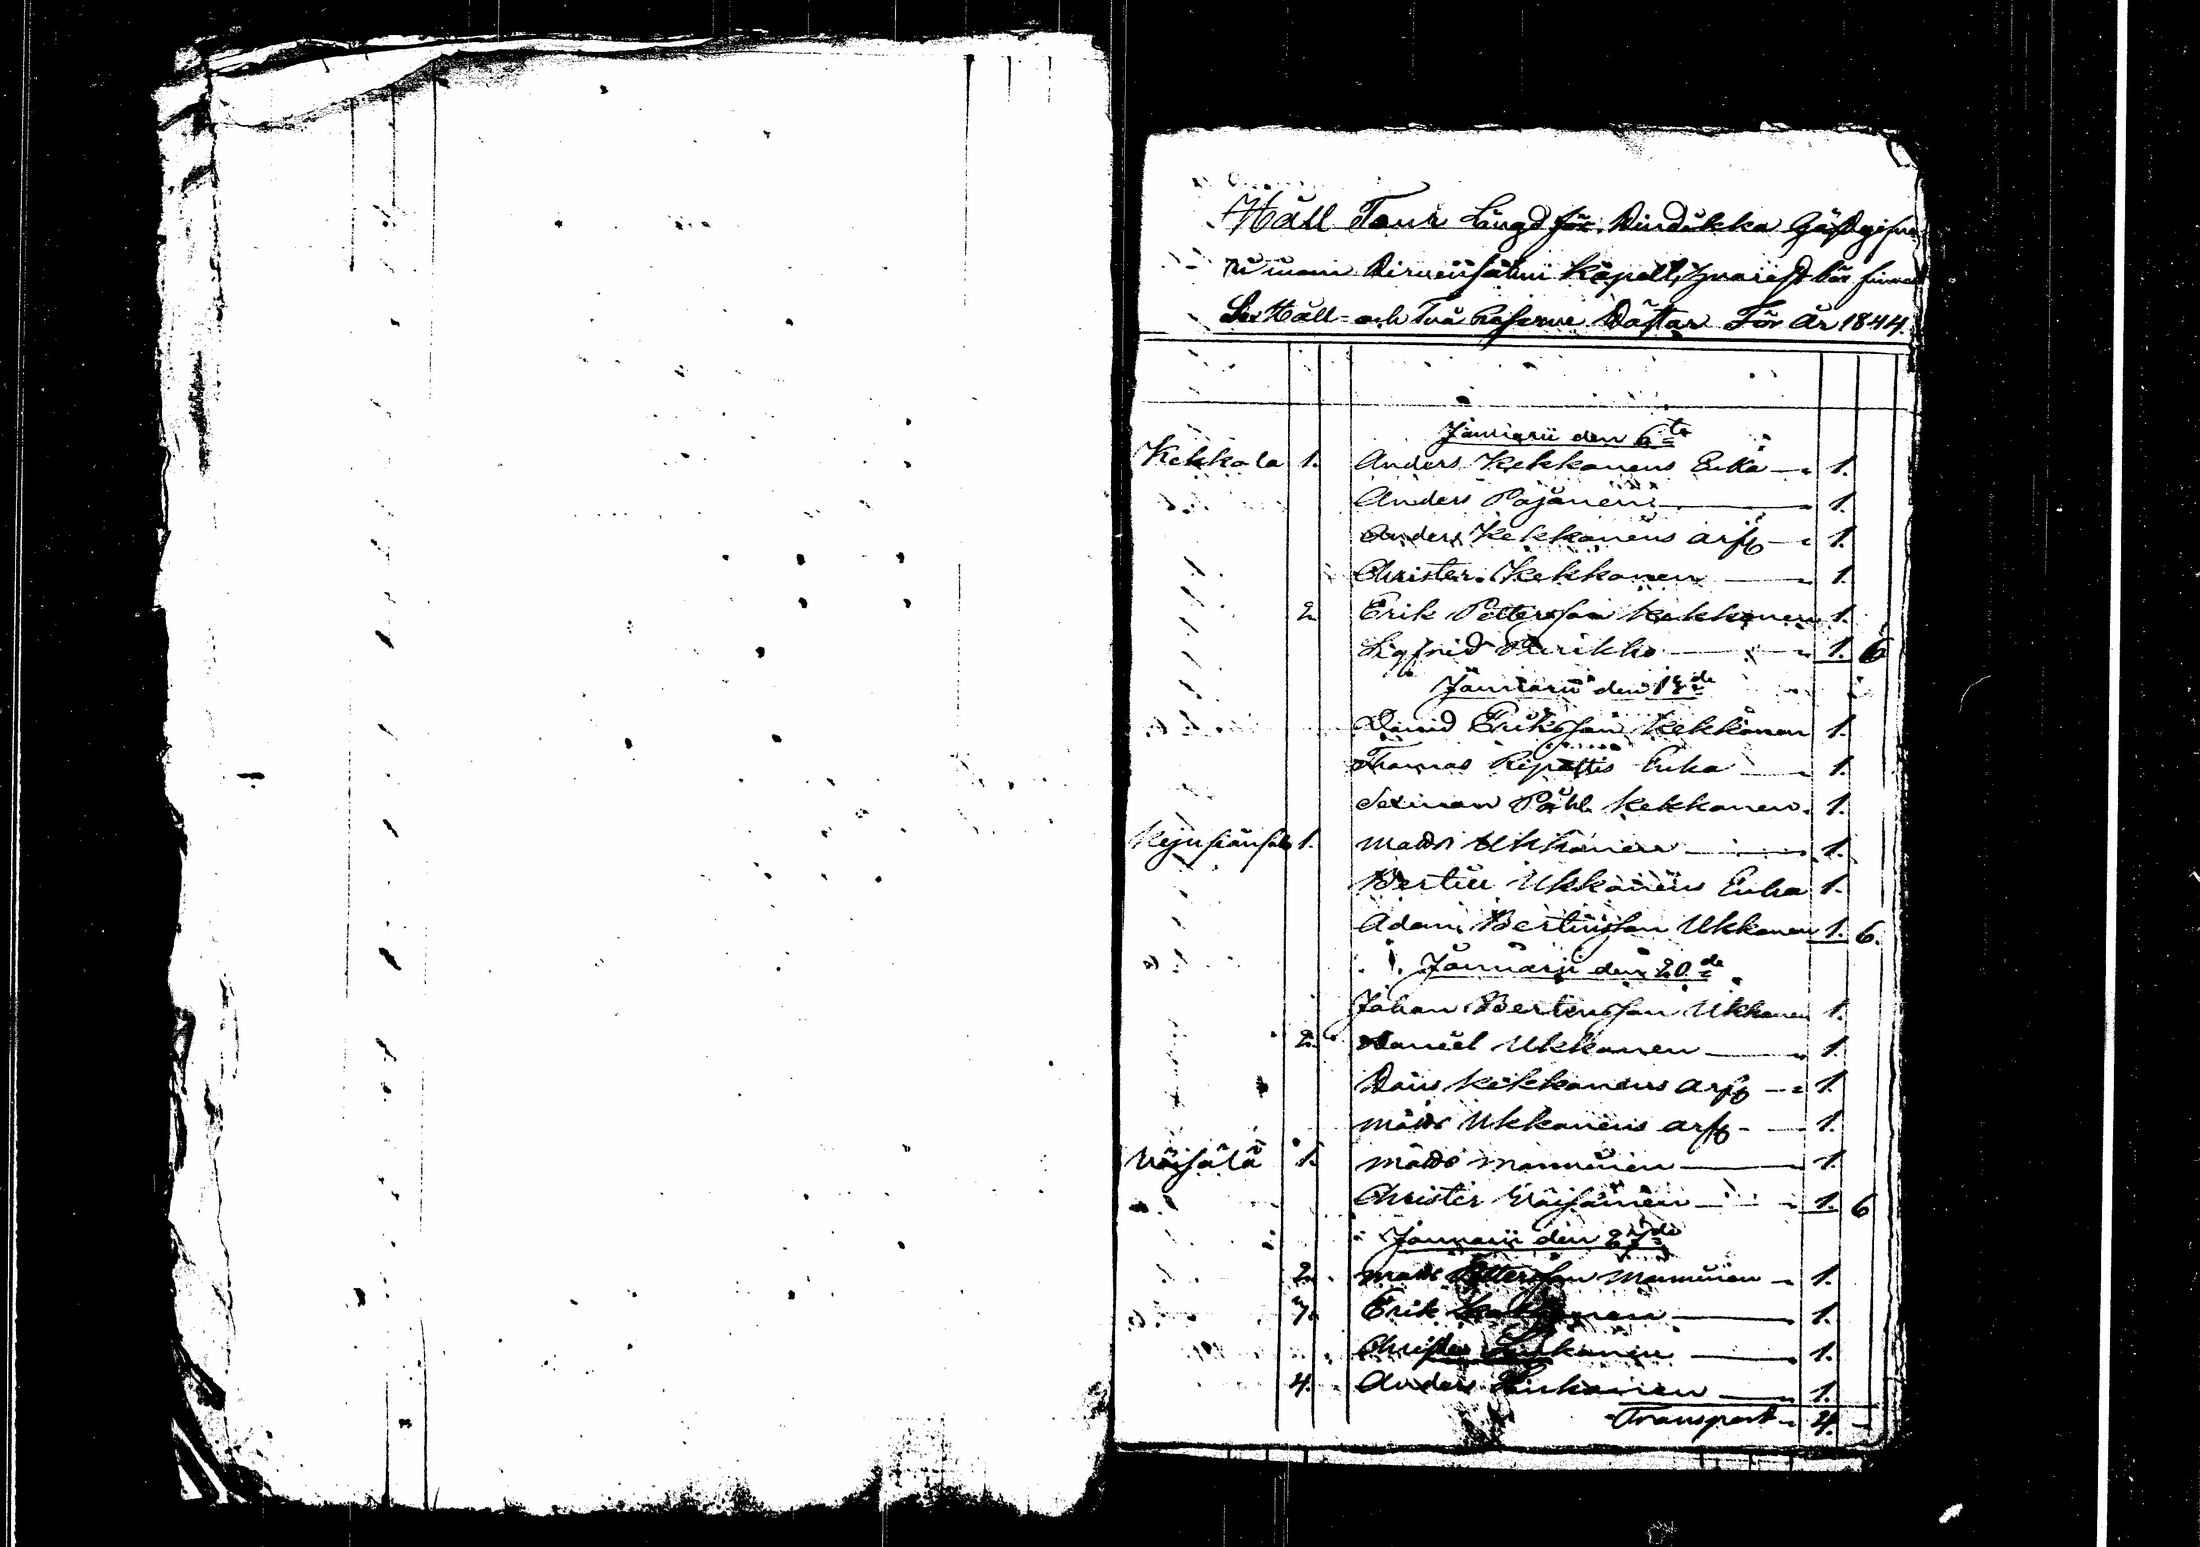 Håll Tour Längd för Dindikka Gästgifve
ri inom Kapell, hvarest bör finnas
Sex Håll- och Två Reserve Hästar För år 1844.
Januarii den 6te
Kekkola 1. Anders Kekkonens Enka 1.
Anders Pajanen 1.
Anders Kekkonens arfg 1.
Christer Kekkonen 1.
2 Erik Pettersson Kekkonen 1.
Sigfrid Purikko 1. 6
Januarii den 13de
David Eriksson Kekkonen 1.
Thomas Ripattis Enka 1.
Påhl Kekkonen 1.
1. Mats Ukkonen 1.
Bertill Ukkonens Enka 1.
Adam Bertilsson Ukkonen 1. 6.
Januarii den 20de
Johan Bertilsson Ukkonen 1.
2. Daniel Ukkonen 1.
Kekkonens arfg 1.
Mats Ukkonens arfg 1.
Väisälä 1. Mats Manninen 1.
Christer Väisänen 1. 6
Januarii den 27de
2. Mats Pettersson Manninen 1.
Erik 1.
Christer 1.
4. Anders 1.
Transport 4. -